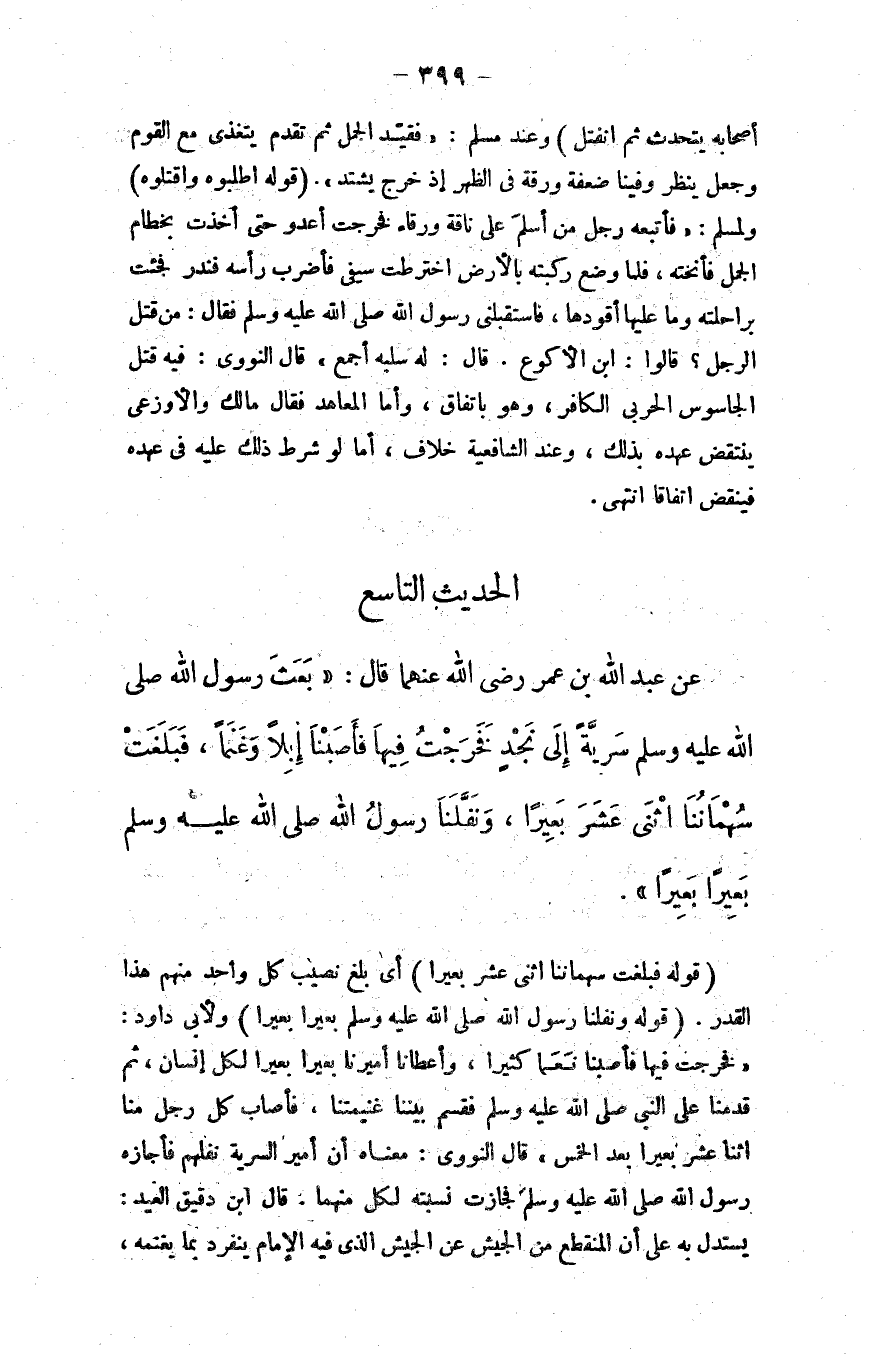 - ٣٩٩ -
أصحابه يتحدث ثم انفتل ) وعند مسلم : « فقيّد الجمل ثم تقدم يتغذى مع القوم
وجعل ينظر وفينا ضعفة ورقة فى الظهر إذ خرج يشتد » . (قوله اطلبوه واقتلوه)
ولمسلم : « فأتبعه رجل من أسلمَ على ناقة ورقاء فخرجت أعدو حتى أخذت بخطام
الجمل فأنخته ، فلما وضع ركبته بالأرض اخترطت سيفى فأضرب رأسه فندر فجئت
براحلته وما عليها أقودها ، فاستقبلنى رسول الله صلى الله عليه وسلم فقال : من قتل
الرجل ؟ قالوا : ابن الأكوع . قال : له سلبه أجمع » قال النووى : فيه قتل
الجاسوس الحربى الكافر ، وهو باتفاق ، وأما المعاهد فقال مالك والأوزعى
ينتقض عهده بذلك ، وعند الشافعية خلاف ، أما لو شرط ذلك عليه فى عهده
فينقض اتفاقا انتهى .
الحديث التاسع
عن عبد الله بن عمر رضى الله عنهما قال : « بَعَثَ رسول الله صلى
الله عليه وسلم سَرِيَّةً إِلَى نَجْدٍ فَخَرَجْتُ فِيهاَ فأَصَبْنْاَ إِبِلاً وَغَنَماً ، فَبَلَغَتْ
سُهْمَانُنَا اثْنَى عَشَرَ بَعِيرًا ، وَنَفَّلَنَا رسولُ الله صلى الله عليـــه وسلم
بَعِيرًا بَعِيرًا » .
( قوله فبلغت سهماننا اثنى عشر بعيرا ) أى بلغ نصيب كل واحد منهم هذا
القدر . ( قوله ونفلنا رسول الله صلى الله عليه وسلم بعيرا بعيرا ) ولأبى داود :
« فخرجت فيها فأصبنا نَعَما كثيرا ، وأعطانا أميرنا بعيرا بعيرا لكل إنسان ، ثم
قدمنا على النبى صلى الله عليه وسلم فقسم بيننا غنيمتنا ، فأصاب كل رجل منا
اثنا عشر بعيرا بعد الخمس » قال النووى : معنـاه أن أمير السرية نفلهم فأجازه
رسول الله صلى الله عليه وسلم فجازت نسبته لكل منهما . قال ابن دقيق العيد :
يستدل به على أن المنقطع من الجيش عن الجيش الذى فيه الإمام ينفرد بما يغتمه ،